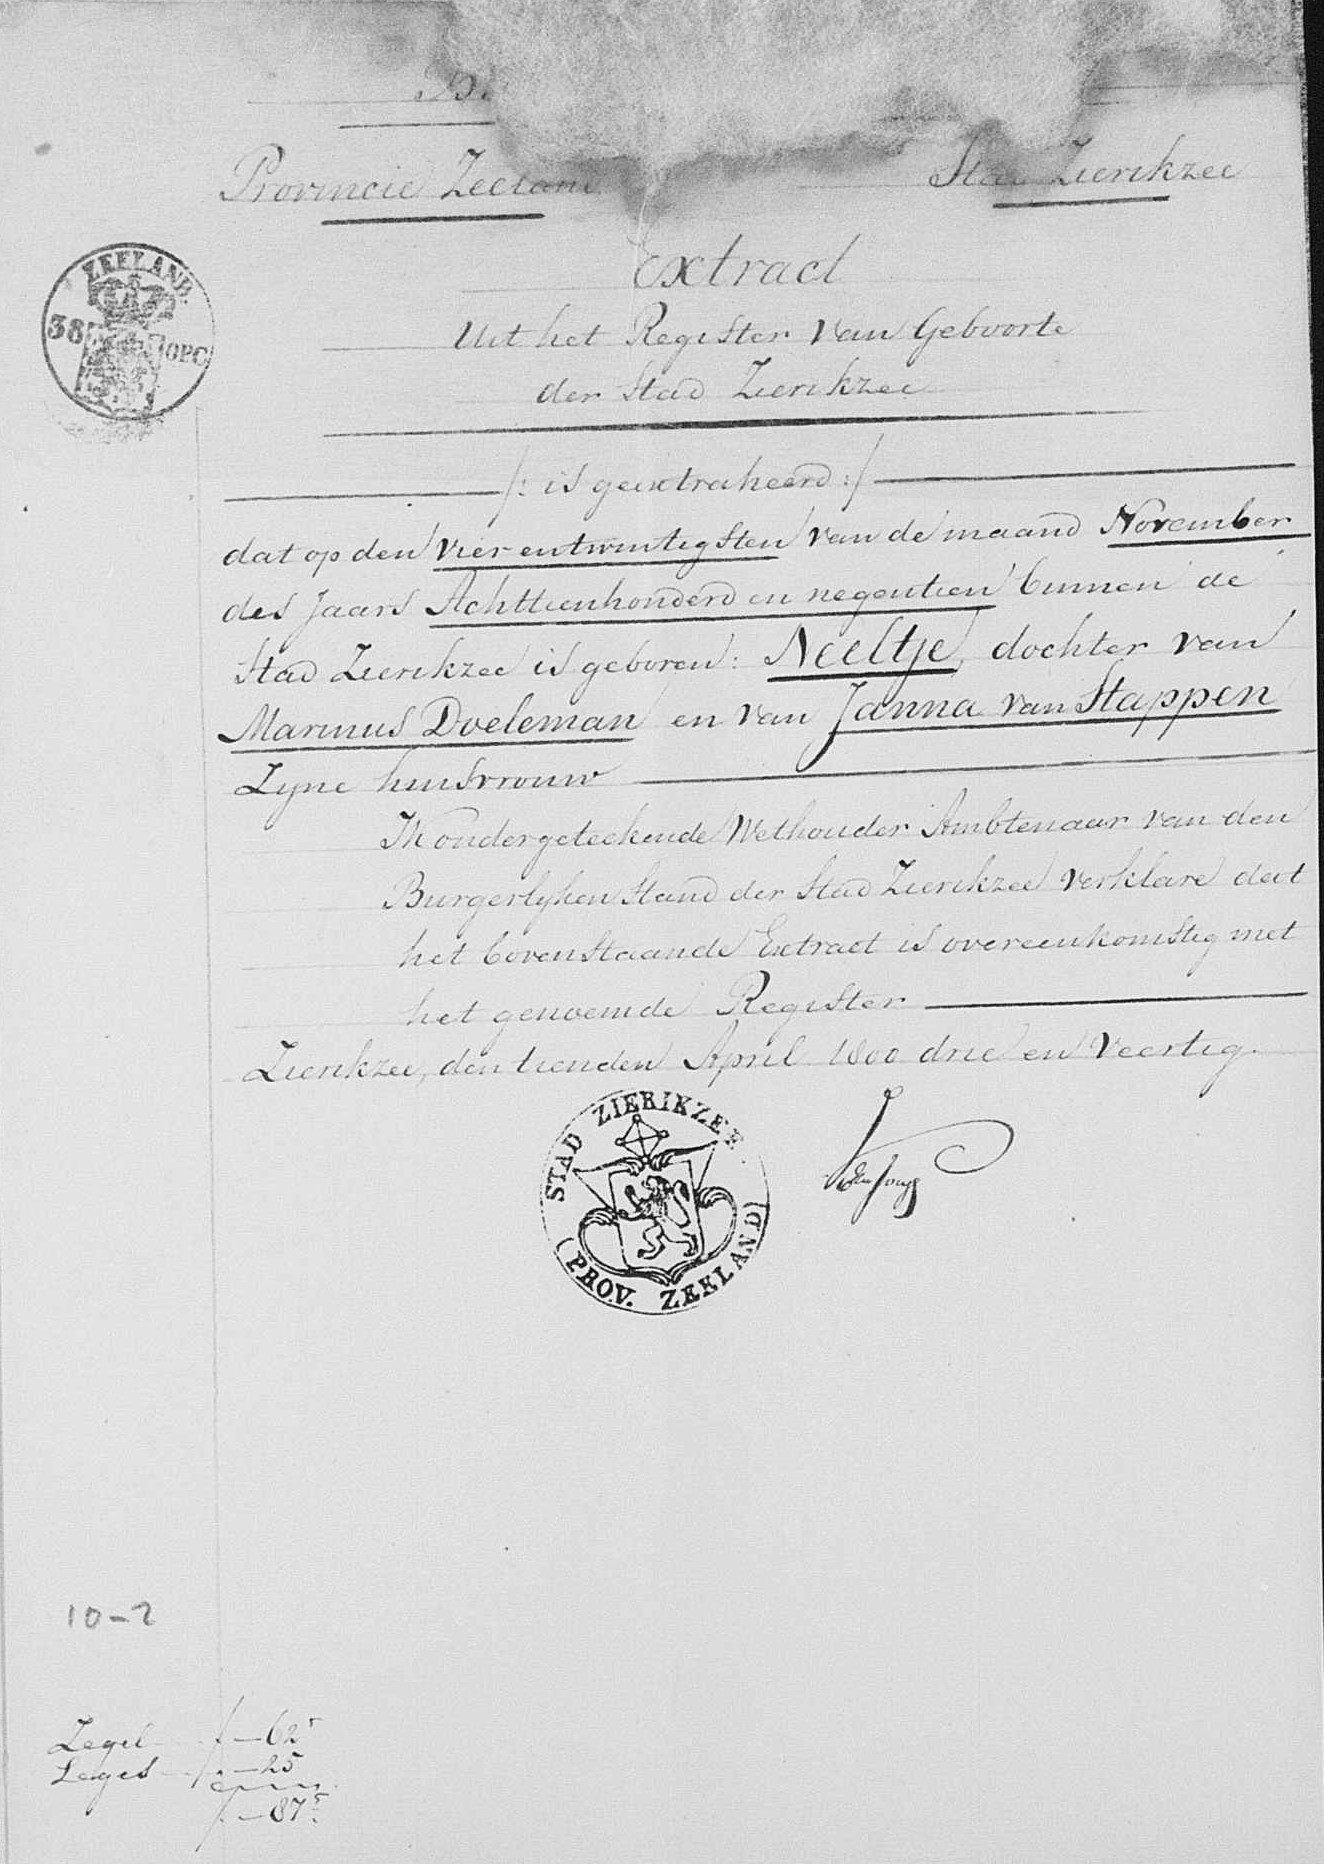 Provincie Zeeland Stad Zierikzee
ZEELAND.
38 OPC
Extract
Uit het Register van Geboorte
der Stad Zierikzee
/: is geextraheerd :/
dat op den vier entwintigsten van de maand November
des Jaars Achttienhonderd en negentien binnen de
Stad Zierikzee is geboren: Neeltje, dochter van
Marinus Doeleman en van Janna van Stappen
Zyne huisvrouw
Ik ondergeteekende Wethouder Ambtenaar van den
Burgerlyken Stand der Stad Zierikzee verklare dat
het bovenstaande Extract is overeenkomstig met
het genoemde Register
Zierikzee, den tienden April 1800 drie en Veertig.
STAD ZIERIKZEE.
(PROV. ZEELAND)
10-2
Zegel f. — 62⁵
Leges f. — 25
f. — 87⁵